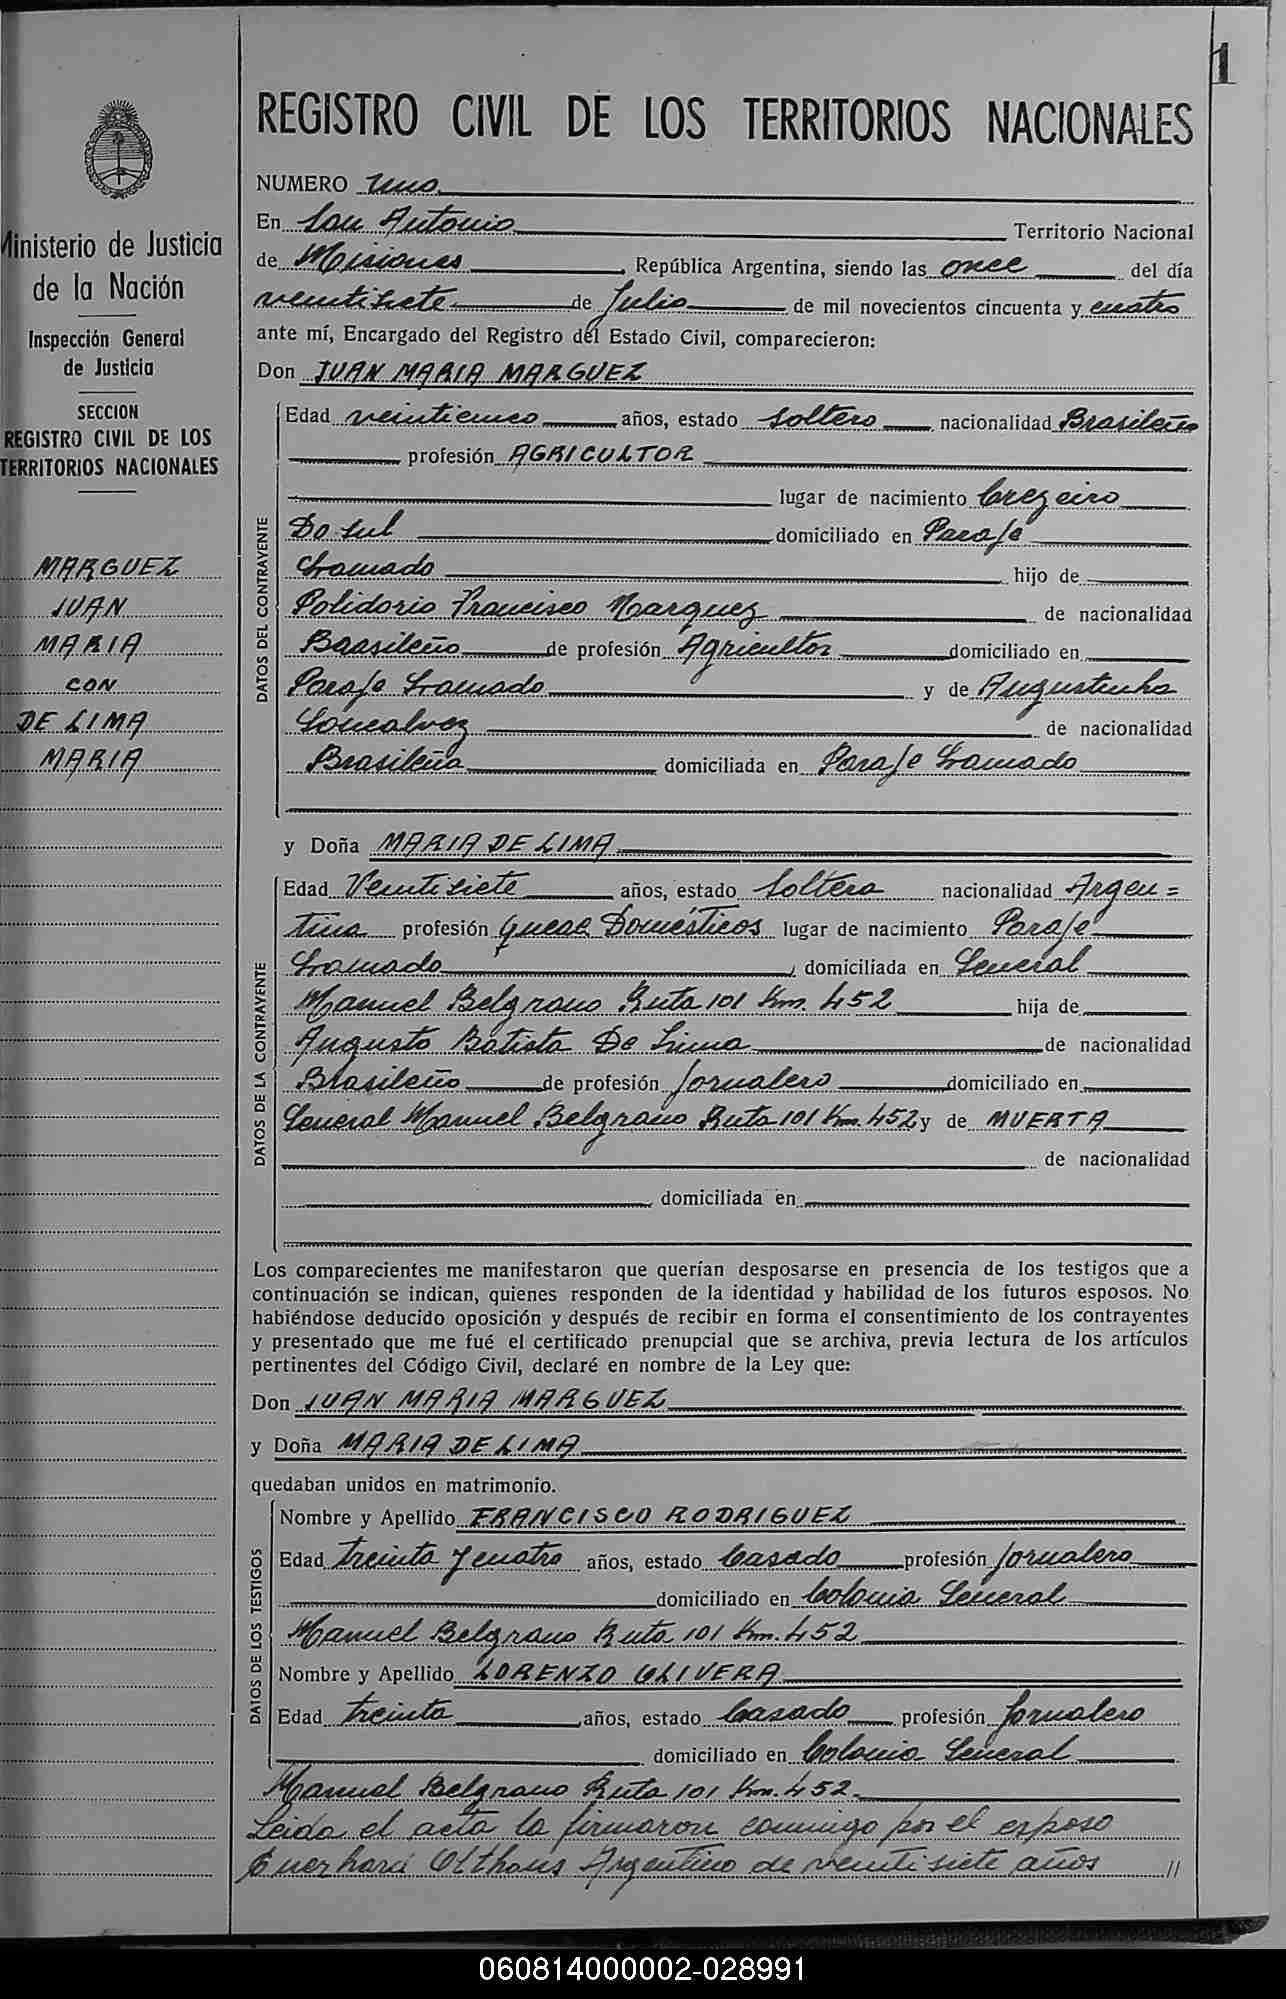 1
REGISTRO CIVIL DE LOS TERRITORIOS NACIONALES
Ministerio de Justicia
de la Nación
Inspección General
de Justicia
SECCION
REGISTRO CIVIL DE LOS
TERRITORIOS NACIONALES
MARGUEZ
JUAN
MARIA
CON
DE LIMA
MARIA
NUMERO Uno
En San Antonio Territorio Nacional
de Misiones, República Argentina, siendo las once del día
veintisiete de Julio de mil novecientos cincuenta y cuatro
ante mí, Encargado del Registro del Estado Civil, comparecieron:
Don JUAN MARIA MARGUEZ
DATOS DEL CONTRAYENTE
Edad veinticinco años, estado Soltero, nacionalidad Brasileño
profesión AGRICULTOR
lugar de nacimiento Crezeiro
Do Sul domiciliado en Paraje
Gramado hijo de
Polidorio Francisco Marquez de nacionalidad
Brasileño de profesión Agricultor domiciliado en
Paraje Gramado y de Augustinha
Goncalvez de nacionalidad
Brasileña domiciliada en Paraje Gramado
y Doña MARIA DE LIMA
DATOS DE LA CONTRAYENTE
Edad Veintisiete años, estado Soltera nacionalidad Argen=
tina profesión Domésticos lugar de nacimiento Paraje
Gramado, domiciliada en General
Manuel Belgrano Ruta 101 Km. 452 hija de
Augusto Batista De Lima de nacionalidad
Brasileño de profesión Jornalero domiciliado en
General Manuel Belgrano Ruta 101 Km. 452 y de MUERTA
de nacionalidad
domiciliada en
Los comparecientes me manifestaron que querían desposarse en presencia de los testigos que a
continuación se indican, quienes responden de la identidad y habilidad de los futuros esposos. No
habiéndose deducido oposición y después de recibir en forma el consentimiento de los contrayentes
y presentado que me fué el certificado prenupcial que se archiva, previa lectura de los artículos
pertinentes del Código Civil, declaré en nombre de la Ley que:
Don JUAN MARIA MARGUEZ
y Doña MARIA DE LIMA
quedaban unidos en matrimonio.
DATOS DE LOS TESTIGOS
Nombre y Apellido FRANCISCO RODRIGUEZ
Edad treinta y cuatro años, estado Casado profesión Jornalero
domiciliado en Colonia General
Manuel Belgrano Ruta 101 Km. 452
Nombre y Apellido LORENZO OLIVERA
Edad treinta años, estado Casado profesión Jornalero
domiciliado en Colonia General
Manuel Belgrano Ruta 101 Km. 452.
Leida el acta la firmaron conmigo por el esposo
Olthaus Argentino de veintisiete años //
060814000002-028991